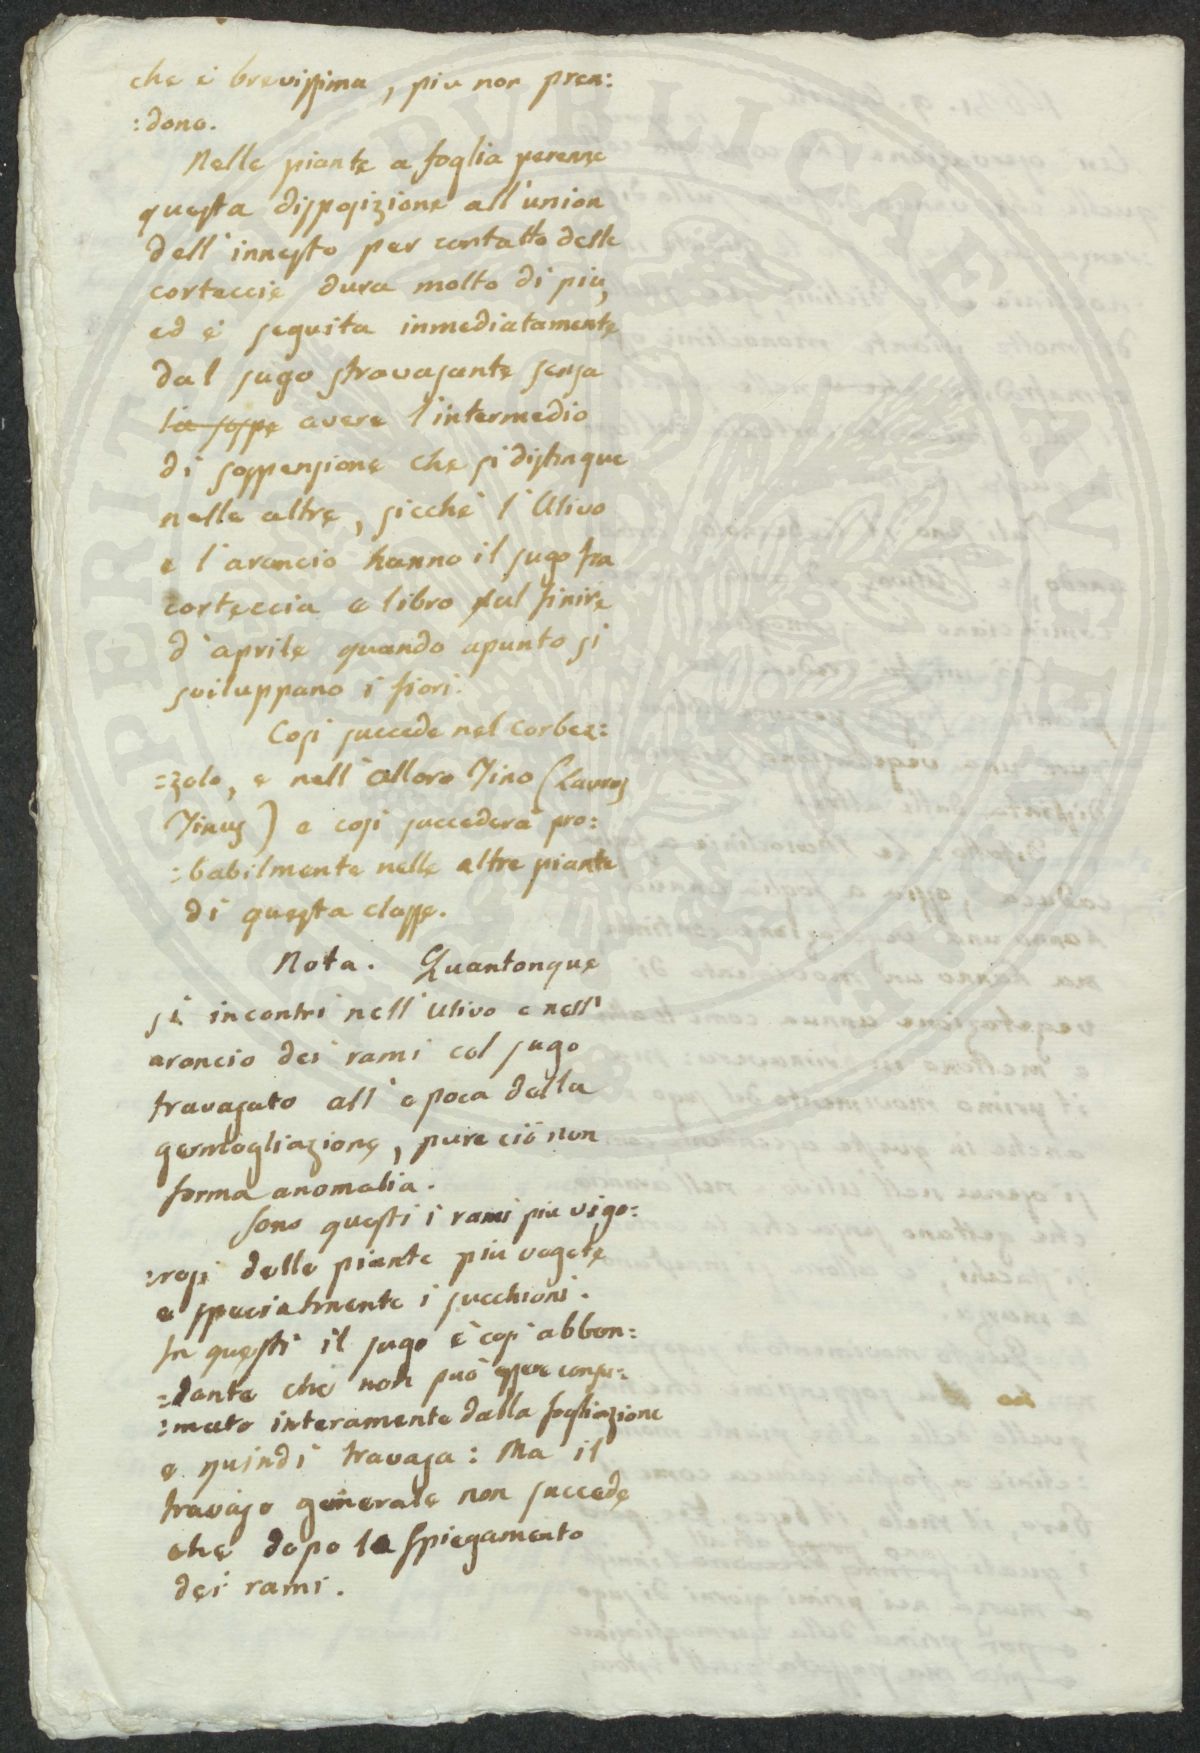 che è brevissima, piu non pren:
:dono.
Nelle piante a foglia perenne
questa disposizione all'union
dell'innesto per contatto delle
corteccie dura molto di piu,
ed è seguita inmediatamente
dal sugo stravasante senza
la sospe avere l'intermedio
di sospensione che si distingue
nelle altre, sicchè l'Ulivo
e l'arancio hanno il sugo fra
corteccia e libro sul finire
d'aprile quando apunto si
sviluppano i fiori.
Cosi succede nel Corbez:
:zolo, e nell'alloro Tino (Lauros
Tinus) e cosi succederà pro:
:babilmente nelle altre piante
di questa classe.
Nota. Quantonque
si incontri nell'Ulivo e nell'
arancio dei rami col sugo
travasato all'epoca della
germogliazione, pure ciò non
forma anomalia.
Sono questi i rami piu vigo:
:rosi delle piante più vegete
e specialmente i succhioni.
In questi il sugo è cosi abbon:
:dante che non può essere consu:
:mato interamente dalla fogliazione
e quindi travasa: Ma il
travaso generale non succede
che dopo lo spiegamento
dei rami.